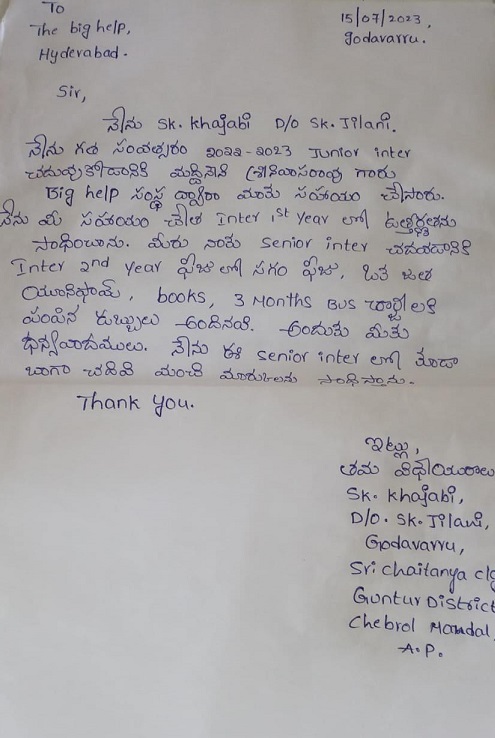 To
The big help,
Hyderabad.
15/07/2023,
Godavarru.
Sir,
నేను SK. Khajabi D/o SK. Jilani.
నేను గత సంవత్సరం 2022-2023 Junior inter
చదువుకోడానికి మద్దినేని శ్రీనివాసరావు గారు
Big help సంస్థ ద్వారా మాకు సహాయం చేసారు.
నేను మీ సహాయం చేత Inter 1st Year లో ఉత్తీర్ణతను
సాధించాను. మీరు నాకు Senior inter చదవడానికి
Inter 2nd Year ఫీజు లో సగం ఫీజు, ఒక జత
యూనిఫామ్, books, 3 Months Bus ఛార్జీ లకి
పంపిన డబ్బులు అందినవి. అందుకు మీకు
ధన్యవాదములు. నేను ఈ Senior inter లో కూడా
బాగా చదివి మంచి మార్కులను సాధిస్తాను.
Thank You.
ఇట్లు,
తమ విధేయురాలు
SK. Khajabi,
D/O. SK. Jilani,
Godavarru,
Sri Chaitanya clg
Guntur District
Chebrol Mandal,
A.P.